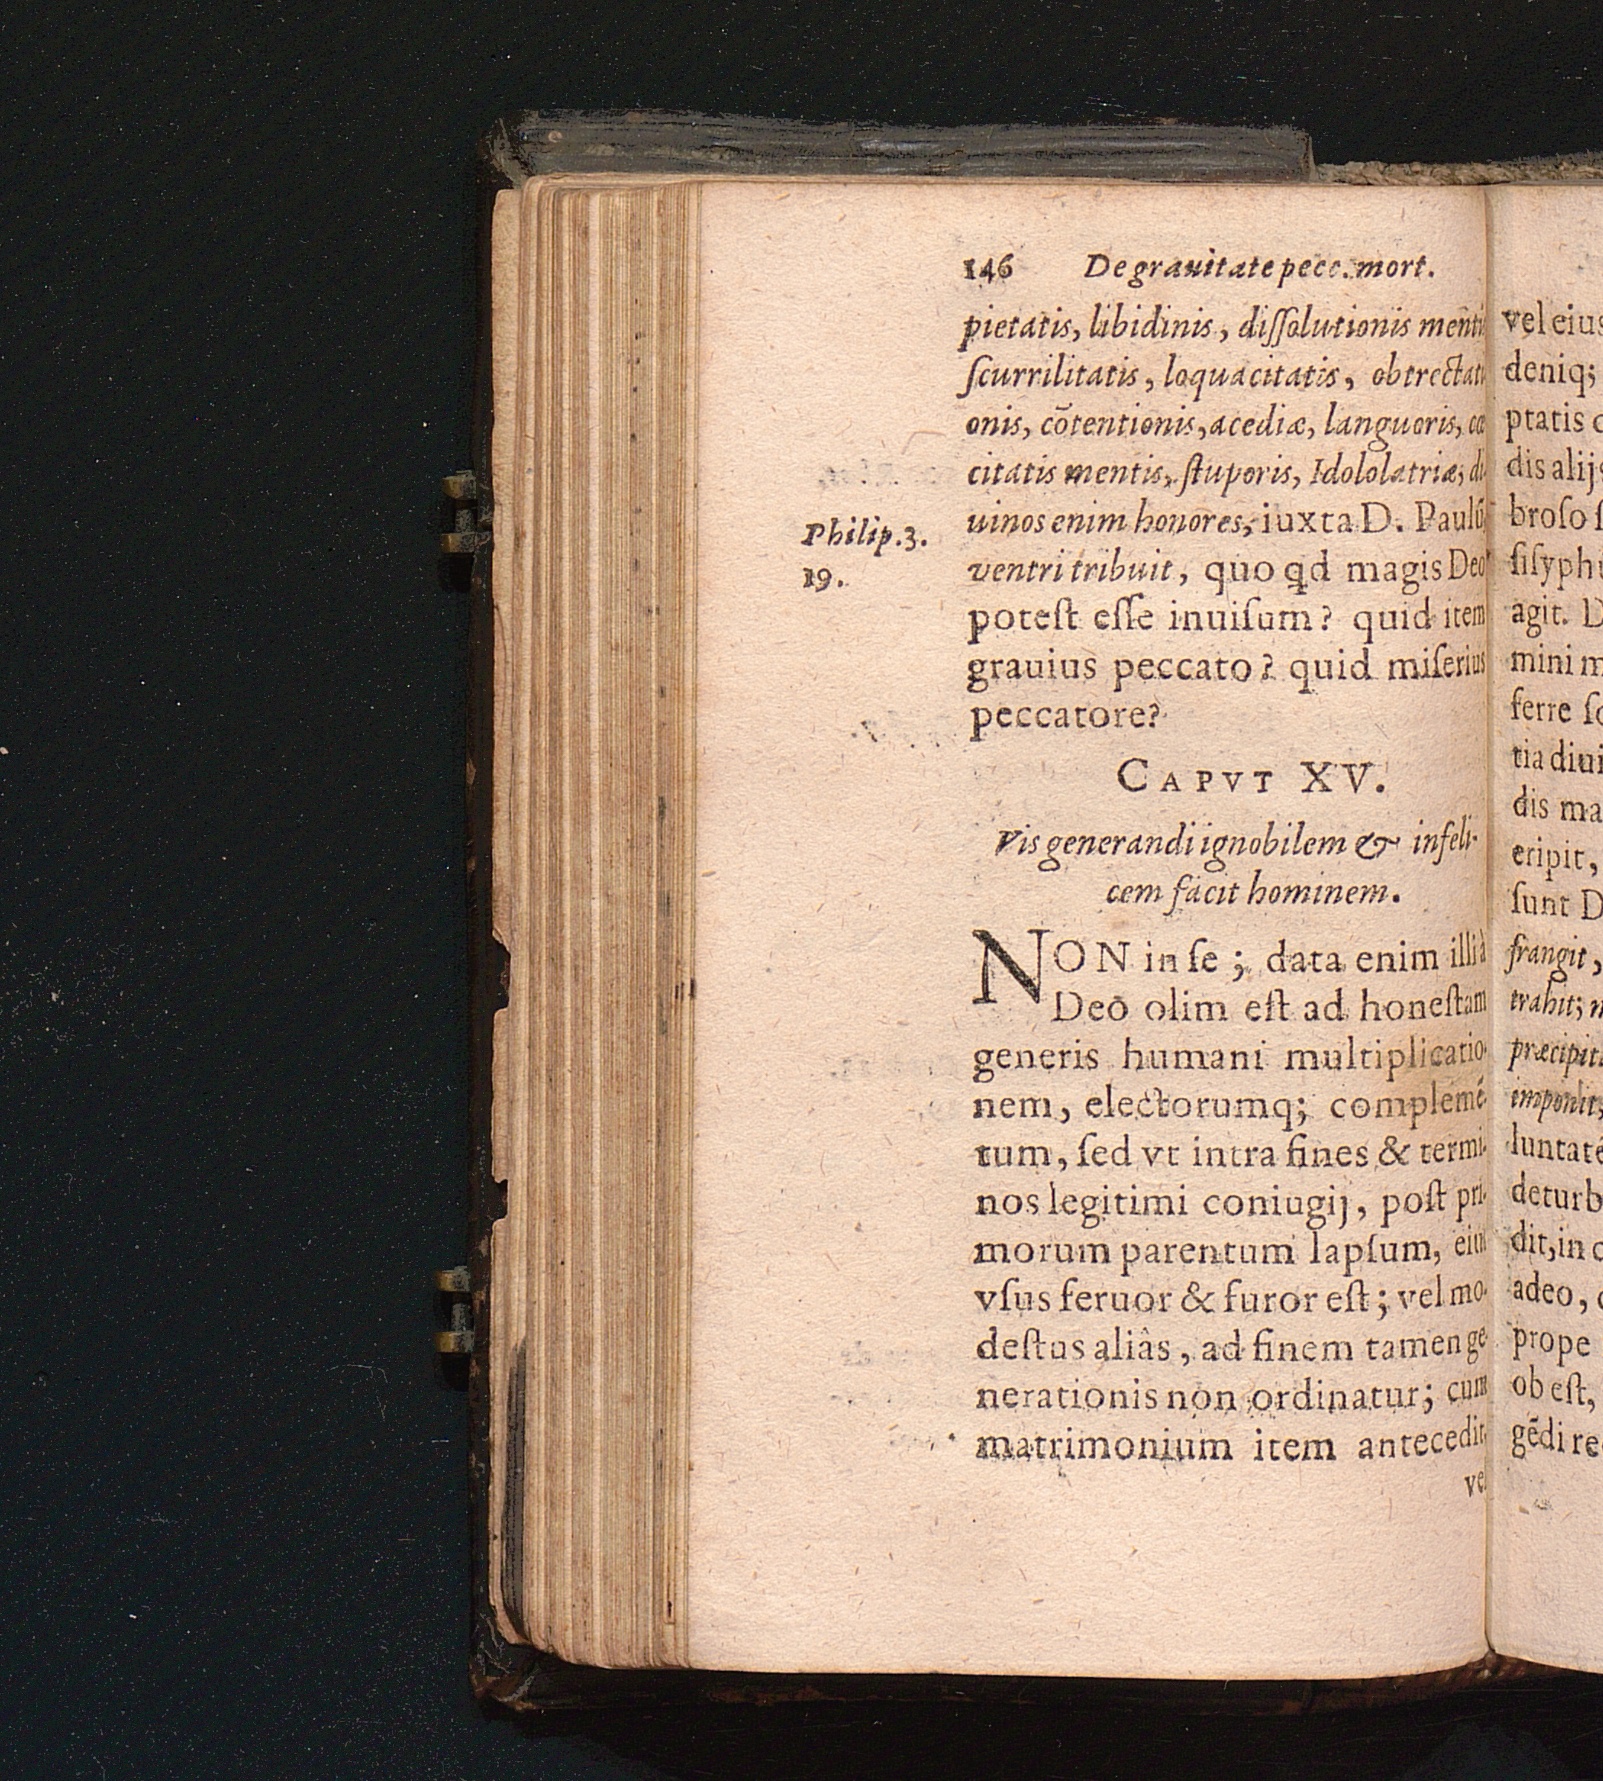 146 De grauitate pecc. mort.
pietatis, libidinis, diſſolutionis menti
ſcurrilitatis, loquacitatis, obtrectati
onis, cōtentionis, acediæ, languoris, cæ
citatis mentis, ſtuporis, Idololatriæ; di
Philip.3.
19.
uinos enim honores, iuxta D. Paulū,
ventri tribuit, quo qd magis Deo
poteſt eſſe inuiſum? quid item
grauius peccato? quid miſerius
peccatore?
CAPVT XV.
Vis generandi ignobilem & infeli-
cem facit hominem.
NON in ſe; data enim illi à
Deo olim eſt ad honeſtam
generis humani multiplicatio-
nem, electorumq; complemē-
tum, ſed vt intra fines & termi-
nos legitimi coniugij, poſt pri-
morum parentum lapſum, eiu
vſus feruor & furor eſt; vel mo-
deſtus aliâs, ad finem tamen ge-
nerationis non ordinatur; cum
matrimonium item antecedit,
ve
vel eius
deniq;
ptatis
dis alijs
broſo
ſiſyphi
agit. D
mini m
ferre ſo
tia diui
dis ma
eripit,
ſunt D
frangit,
trahit; n
præcipit
imponit,
luntatē
deturb
dit, in c
adeo,
prope
ob eſt,
gēdi re